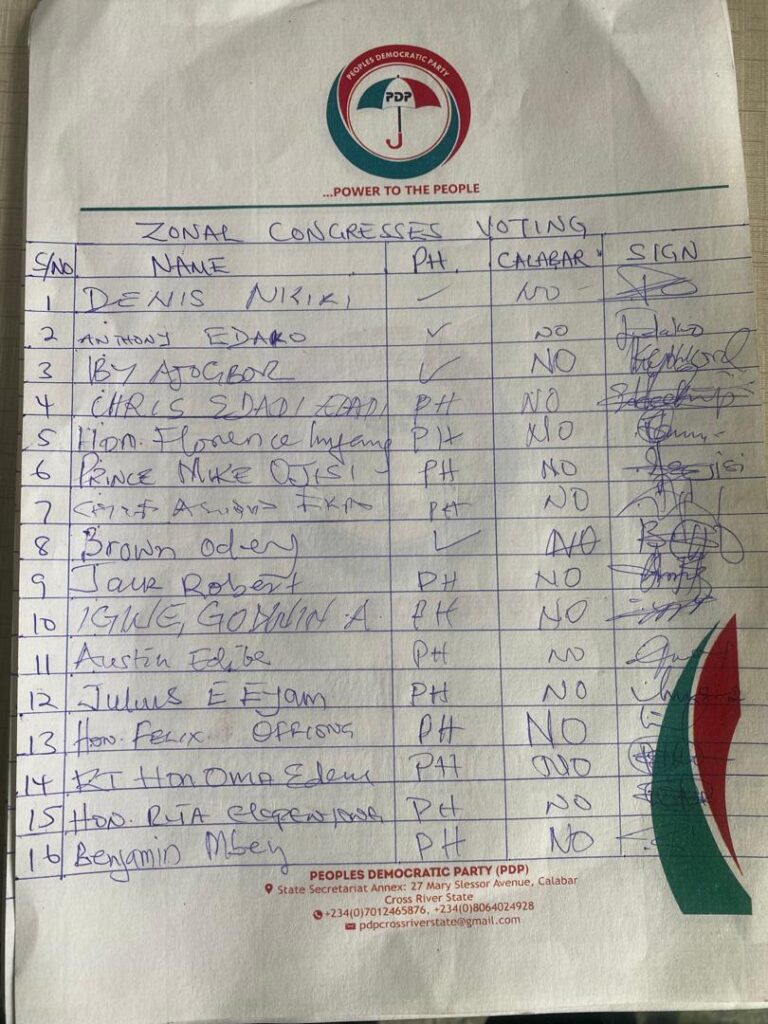 PEOPLES DEMOCRATIC PARTY
PDP
...POWER TO THE PEOPLE
ZONAL CONGRESSES VOTING
S/NO NAME PH. CALABAR SIGN
1 DENIS NKIKI ✓ NO
2 ANTHONY EDAKO ✓ NO Edako
3 IBY AJOGBOR ✓ NO
4 CHRIS EDADI EDADI PH NO
5 Hon. Florence Inyang PH NO
6 PRINCE MIKE OJISI PH NO
7 PH NO
8 Brown Odey ✓ NO
9 Jack Robert PH NO
10 IGWE, GODWIN A. PH NO
11 Austin Edibe PH NO
12 Julius E Eyam PH NO
13 HON. FELIX OFFIONG PH NO
14 RT HON Oma Edem PH NO
15 HON. RITA PH NO
16 Benjamin Mbey PH NO
PEOPLES DEMOCRATIC PARTY (PDP)
State Secretariat Annex: 27 Mary Slessor Avenue, Calabar
Cross River State
+234(0)7012465876, +234(0)8064024928
pdpcrossriverstate@gmail.com